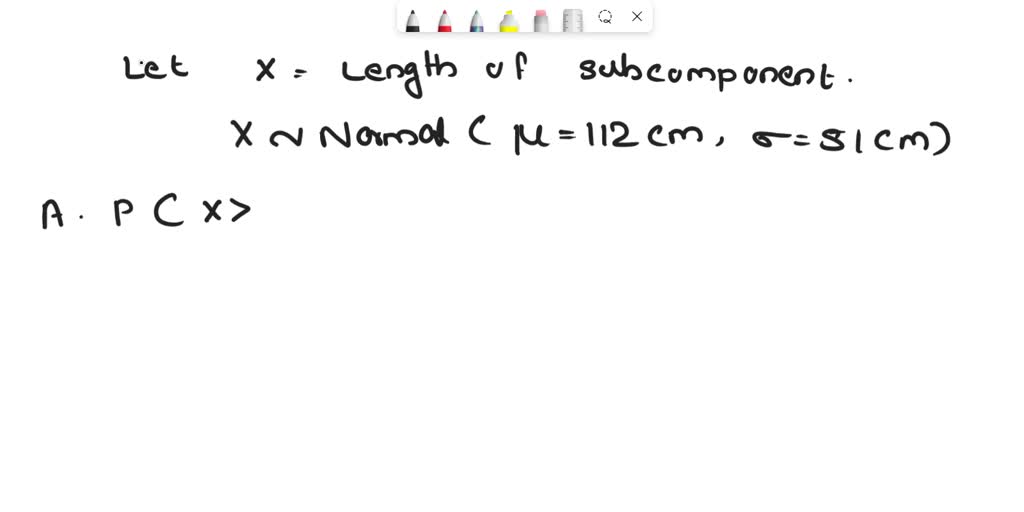 Let X = Length of subcomponent.
X ~ Normal ( μ = 112 cm, σ = 51 cm)
A. P ( X >